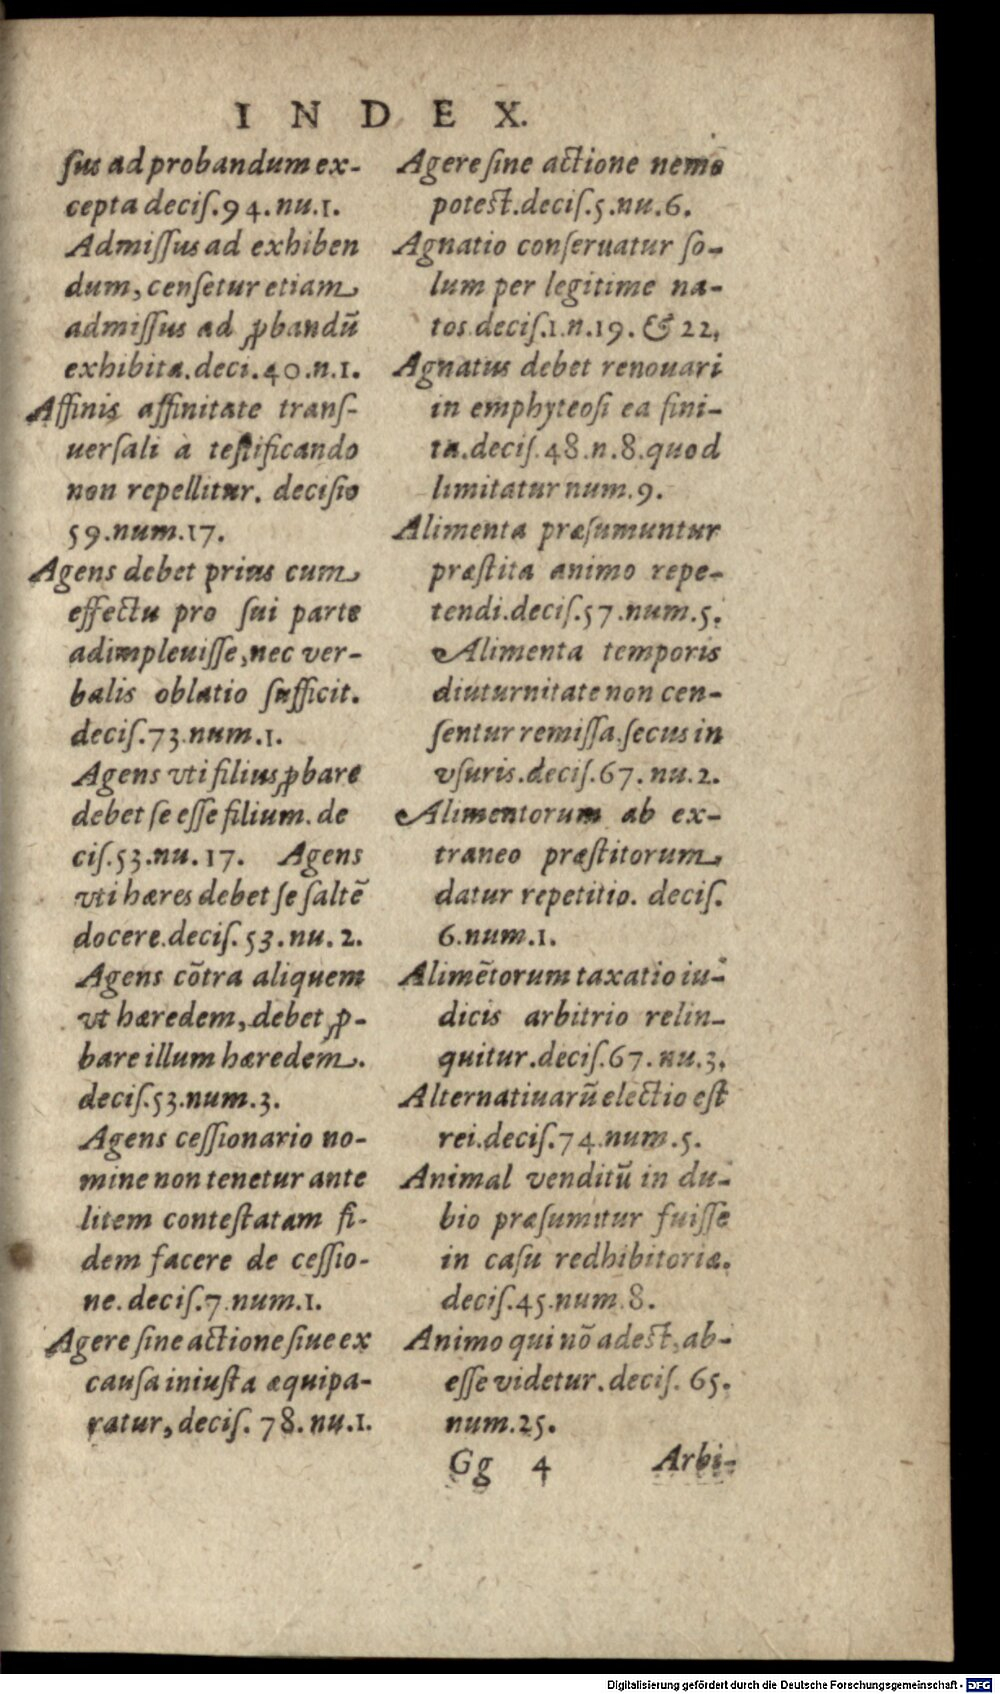 INDEX.
ſus ad probandum ex-
cepta deciſ.94.nu.1.
Admiſſus ad exhiben
dum, cenſetur etiam
admiſſus ad ꝓbandū
exhibita.deci.40.n.1.
Affinis affinitate tranſ-
uerſali à teſtificando
non repellitur. deciſio
59.num.17.
Agens debet prius cum
effectu pro ſui parte
adimpleuiſſe, nec ver-
balis oblatio ſufficit.
deciſ.73.num.1.
Agens vti filius ꝓbare
debet ſe eſſe filium. de
ciſ.53.nu.17. Agens
vti hæres debet ſe ſaltē
docere.deciſ.53.nu.2.
Agens cōtra aliquem
vt hæredem, debet ꝓ-
bare illum hæredem.
deciſ.53.num.3.
Agens ceſſionario no-
mine non tenetur ante
litem conteſtatam fi-
dem facere de ceſſio-
ne. deciſ.7.num.1.
Agere ſine actione ſiue ex
cauſa iniuſta æquipa-
ratur, deciſ. 78.nu.1.
Agere ſine actione nemo
poteſt.deciſ.5.nu.6.
Agnatio conſeruatur ſo-
lum per legitime na-
tos.deciſ.1.n.19. & 22.
Agnatus debet renouari
in emphyteoſi ea fini-
ta.deciſ.48.n.8.quod
limitatur num.9.
Alimenta præſumuntur
præſtita animo repe-
tendi.deciſ.57.num.5.
Alimenta temporis
diuturnitate non cen-
ſentur remiſſa.ſecus in
vſuris.deciſ.67.nu.2.
Alimentorum ab ex-
traneo præſtitorum
datur repetitio. deciſ.
6.num.1.
Alimētorum taxatio iu-
dicis arbitrio relin-
quitur.deciſ.67.nu.3.
Alternatiuarū electio eſt
rei.deciſ.74.num.5.
Animal venditū in du-
bio præſumitur fuiſſe
in caſu redhibitoriæ.
deciſ.45.num.8.
Animo qui nō adeſt, ab-
eſſe videtur.deciſ. 65.
num.25.
Gg 4 Arbi-
Digitalisierung gefördert durch die Deutsche Forschungsgemeinschaft - DFG